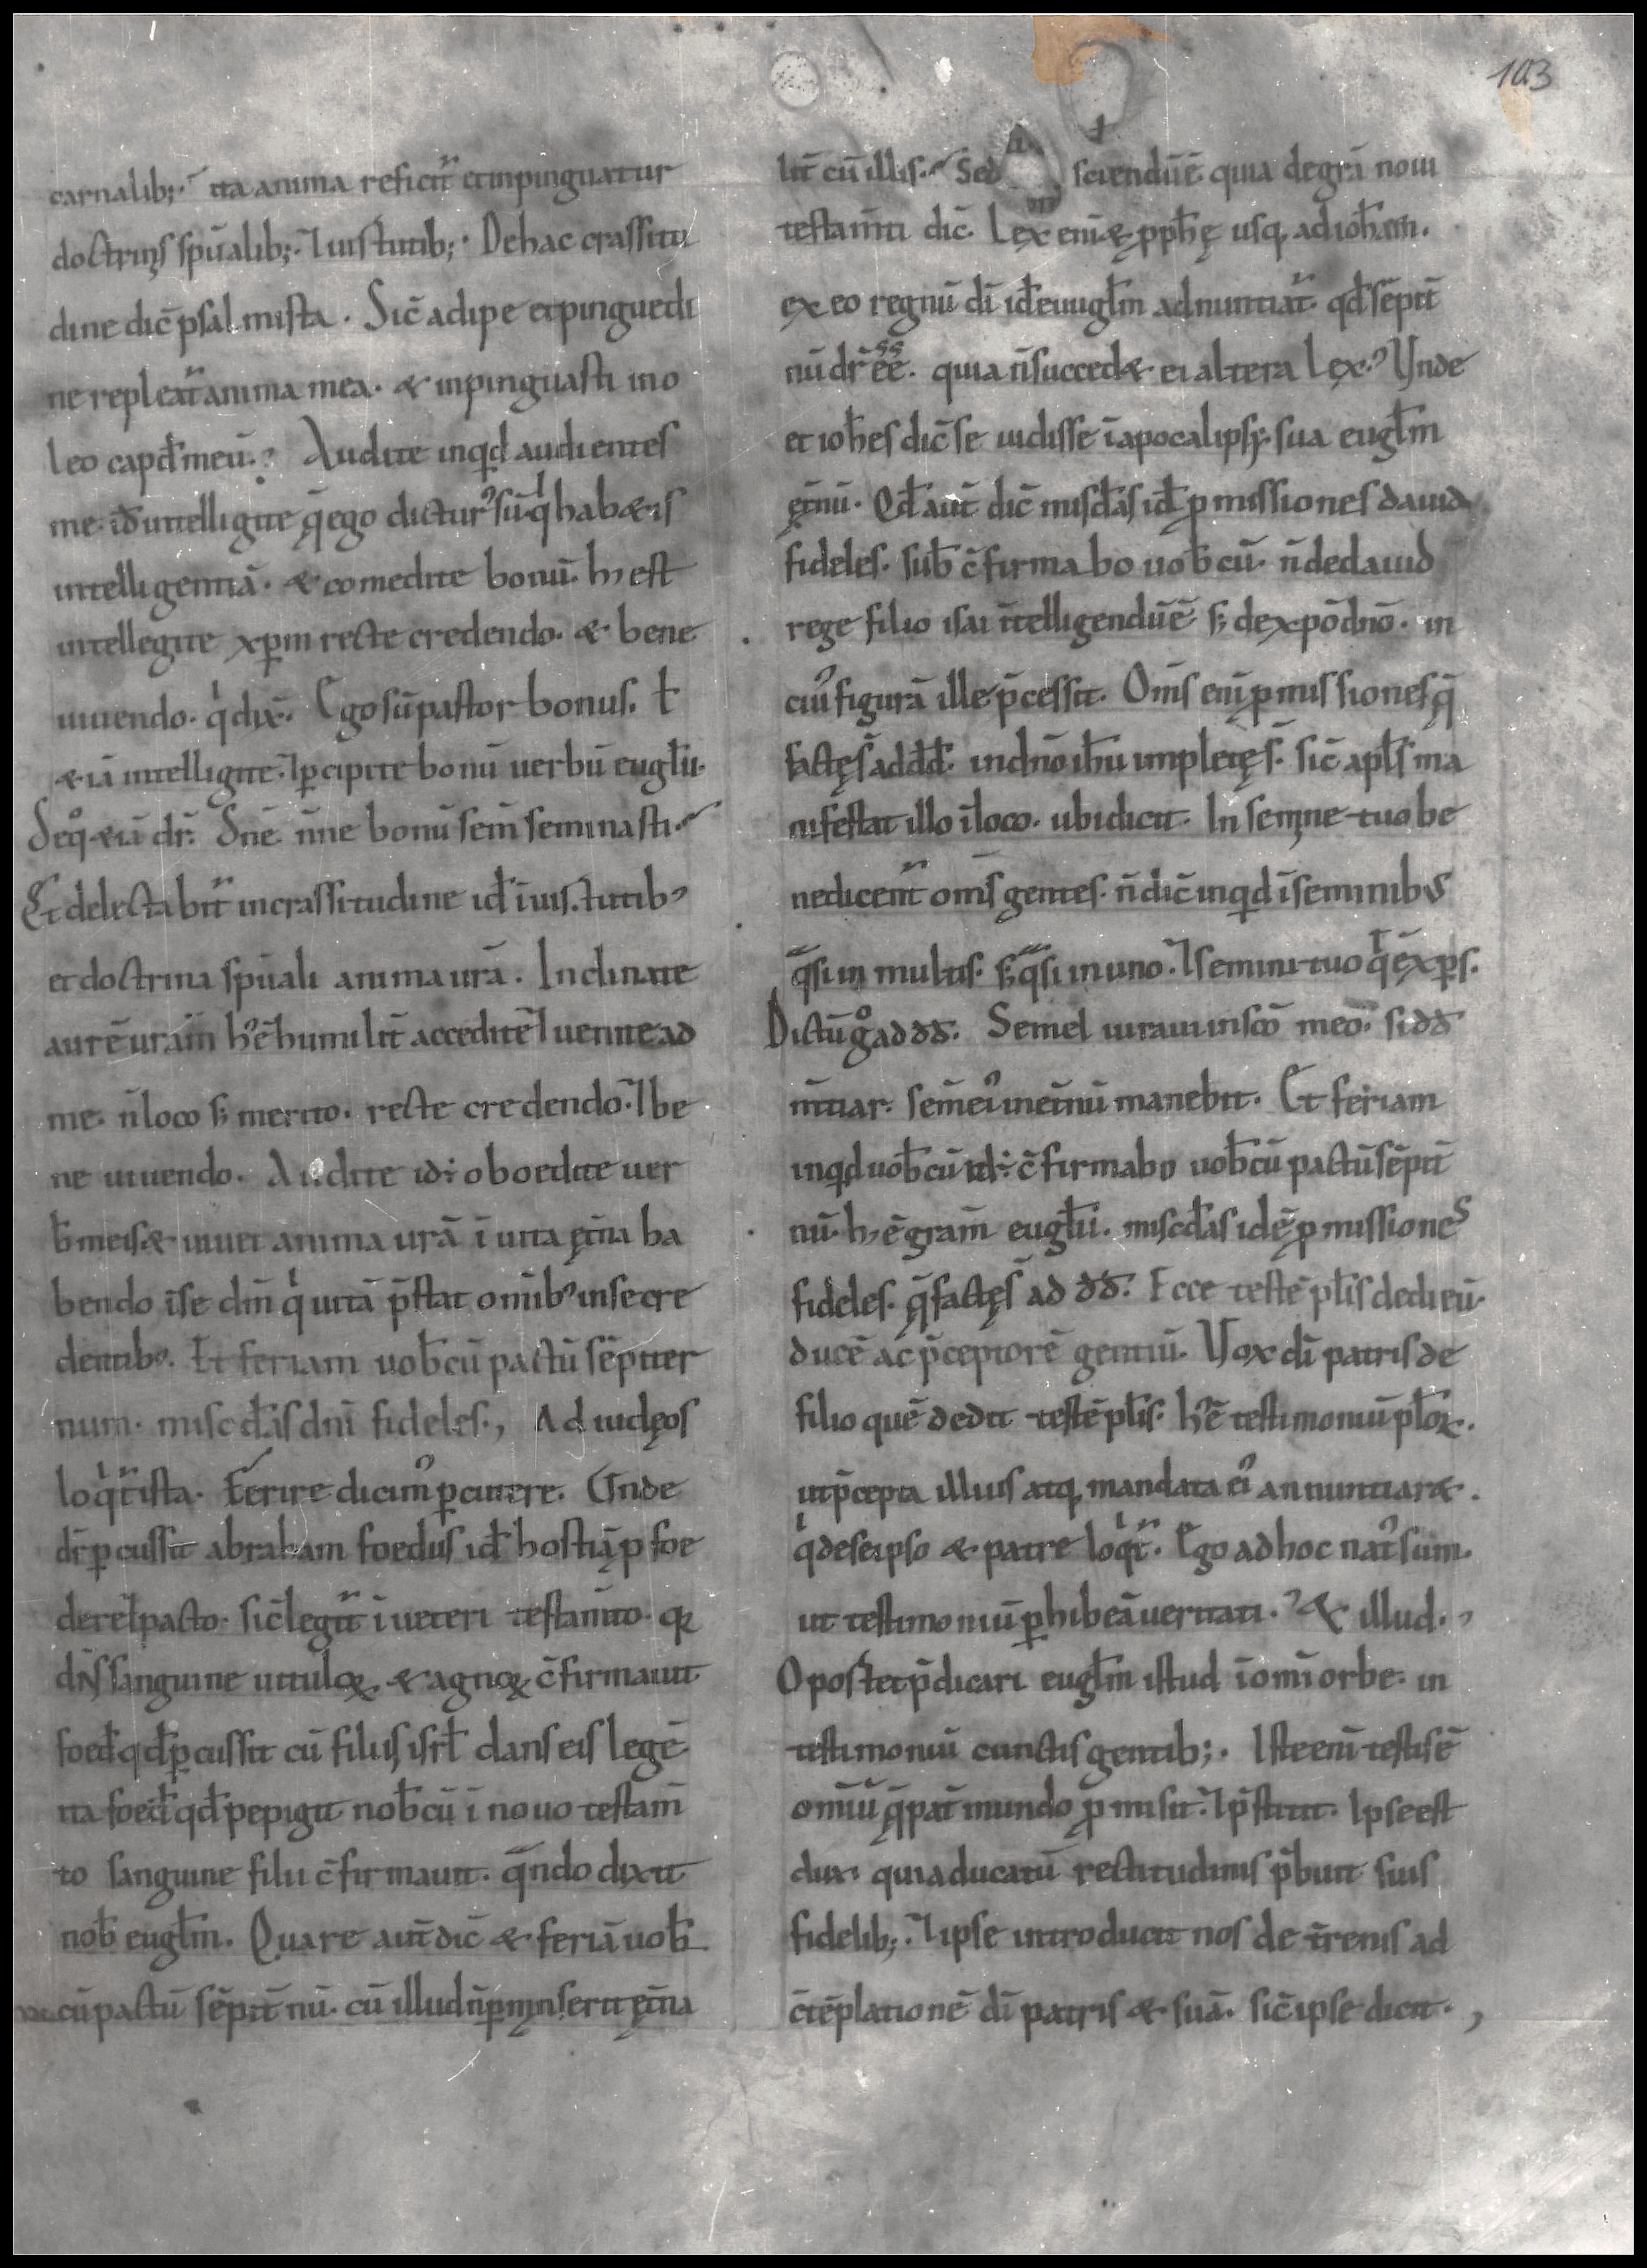 103
carnalib;· ita anima reficit̃ et inpinguatur
doctrinis spũalib;· ⁊ iustitiib;· De hac crassitu
dine dic̃ psalmista. Sic̃ adipe et pinguedi
ne repleat̃ anima mea. & inpinguasti in o
leo cap̃d meũ.? Audite inqd audientes
me. id̃ intelligite q̃ ego dictur᾽ sũ. q habetis
intelligentiã. & comedite bonũ. h̃ est
intellegite xp̃m recte credendo. & bene
uiuendo. q dix̃. Ego sũ pastor bonus. ł
& iã intelligite. ⁊ p̃cipite bonũ uerbũ eugl̃ii.
De q̊ &iã dr̃. Dñe. ñne bonũ sem̃ seminasti.
Et delectabit̃ in crassitudine id̃ ĩ iustitiib᾽
et doctrina spũali anima urã. Inclinate
aurẽ urãm h̃ẽ humilit̃ accedite ⁊ uenite ad
me. ñ loco s; merito. recte credendo. ⁊ be
ne uiuendo. Audite id÷ oboedite uer
b̃ meis & uiuet anima urã ĩ uita ęt̃na ha
bendo ĩ se dm̃ q uitã p̃stat om̃ib᾽ in se cre
dentib᾽. Et feriam uob̃cũ pactũ sẽpiter
num. misc̃d̃ias dñi fideles., Ad iudęos
loqt̃ ista. Ferire dicim᾽ p̃cutere. Unde
dr̃ p̃cussit abraham foedus id̃ hostiã p foe
dere ⁊ pacto. sic̃ legit̃ ĩ ueteri testam̃to. q;
dñs sanguine uitulor̃ & agnor̃ c̃firmauit
foed̃ qd̃ p̃cussit cũ filiis isrł dans eis legẽ
ita foed̃ qd̃ pepigit nob̃cũ ĩ nouo testam̃
to sanguine filii c̃firmauit. q̃ndo dixit
nob̃ eugl̃m. Quare aut̃ dic̃ & feriã uob̃
cũ pactũ sẽpit̃nũ. cũ illud ñ p̃manserit ęt̃na
lit̃ cũ illis. Sed sciendũ ẽ quia de grã noui
testam̃ti dic̃. Lex eni & pph̃ę usq; ad ioh̃em.
ex eo regnũ dĩ id̃ euugl̃m adnuntiat̃. qd̃ sẽpit̃
nũ dr̃ ẽẽ. quia ñ succed& ei altera lex.? Unde
et ioh̃es dic̃ se uidisse ĩ apocalipsi sua eugl̃m
ęt̃nũ. Qd̃ aut̃ dic̃ misc̃d̃ias id̃ p̃missiones dauid
fideles. sub̃ c̃firmabo uob̃cũ. ñ de dauid
rege filio isai ĩtelligendũ ẽ s; de xp̃o dñõ. in
cui᾽ figurã ille p̃cessit. Om̃s eni p̃missiones q̃
factę s̃ ad dd̃. in dñõ ih̃u impletę s̃. sic̃ apl̃s ma
nifestat illo ĩ loco. ubi dicit. In semine tuo be
nedicent̃ om̃s gentes. ñ dic̃ inqd ĩ seminibus
q̃si in multis. s; q̃si in uno. ⁊ semini tuo q̃ ẽ xp̃s.
Dictũ g̊ ad dd. Semel iuraui in sc̃o meo. si dd
m̃tiar. sem̃ ei᾽ in ęt̃nũ manebit. Et feriam
inqd uob̃cũ id÷ c̃firmabo uob̃cũ pactũ sẽpit̃
nũ. h̃ ẽ gram̃ eugl̃ii. misc̃d̃ias id ẽ p̃missiones
fideles. q̃ factę s̃ ad dd. Ecce testẽ pl̃is dedi eũ.
ducẽ ac p̃ceptorẽ gentiũ. Vox dĩ patris de
filio quẽ dedit testẽ pl̃is. h̃ ẽ testimoniũ pl̃or̃.
ut p̃cepta illius atq; mandata ei᾽ annuntiar&.
q de seipso & patre loqt̃. Ego ad hoc nat᾽ sum.
ut testimoniũ p̃hibeã ueritati.? & illud.
Oportet p̃dicari eugl̃m istud ĩ om̃i orbe. in
testimoniũ cunctis gentib;. Iste eni testis ẽ
om̃iũ q̃ pat̃ mundo p̃misit. ⁊ p̃stitit. Ipse est
dux. quia ducatũ rectitudinis p̃buit suis
fidelib;. ⁊ ipse introducit nos de t̃renis ad
c̃tẽplationẽ dĩ patris & suã. sic̃ ipse dicit.,